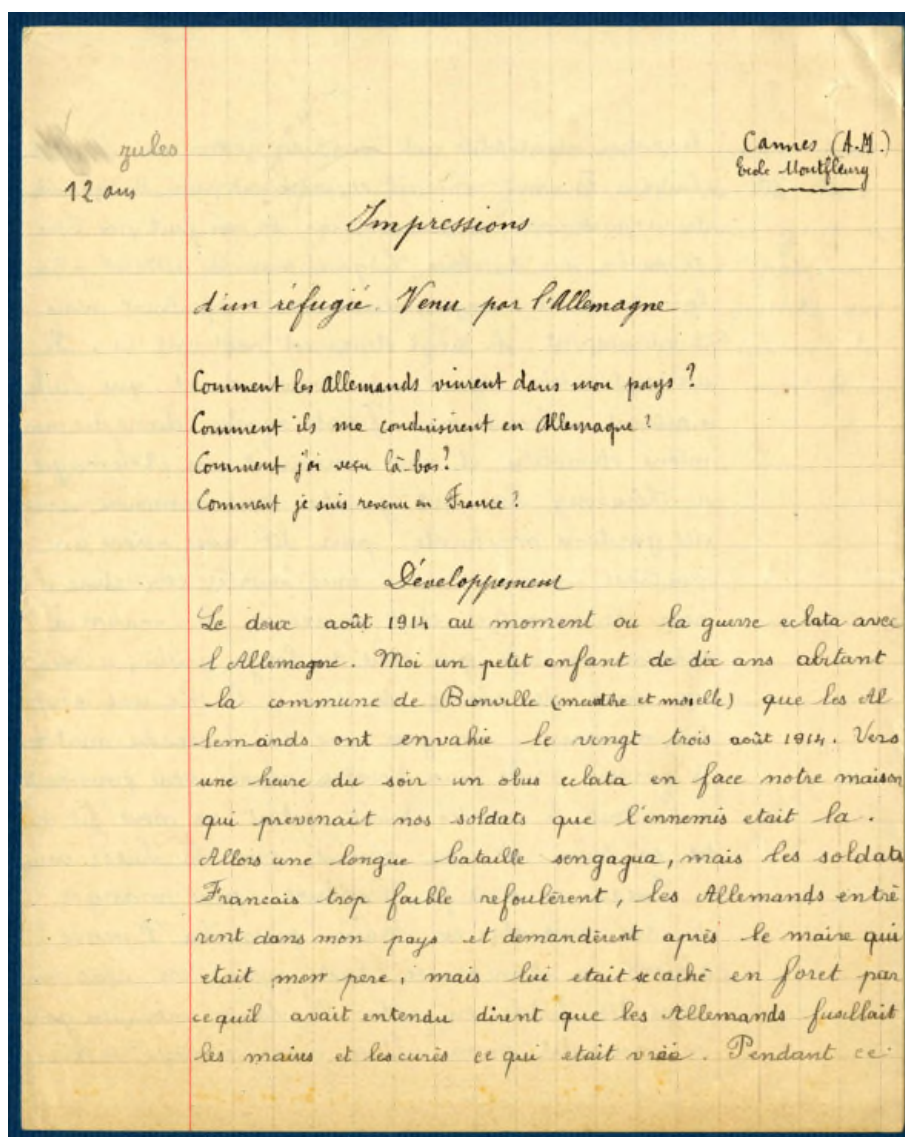 Jules
12 ans
Cannes (A.M.)
Ecole Montfleury
Impressions
d'un réfugié. Venu par l'Allemagne
Comment les Allemands vinrent dans mon pays ?
Comment ils me conduisirent en Allemagne ?
Comment j'ai veçu là-bas ?
Comment je suis revenu en France ?
Développement
Le deux août 1914 au moment ou la guerre eclata avec
l'Allemagne. Moi un petit enfant de dix ans abitant
la commune de Bionville (meurthe et moselle) que les Al
lemands ont envahie le vingt trois août 1914. Vers
une heure du soir un obus eclata en face notre maison
qui prevenait nos soldats que l'ennemis etait la.
Allors une longue bataille sengagua, mais les soldats
Francais trop faible refoulèrent, les Allemands entrè
rent dans mon pays et demandèrent après le maire qui
etait mon pere, mais lui etait se caché en foret par
cequil avait entendu dirent que les Allemands fusillait
les maires et les curés ce qui etait vrée. Pendant ce